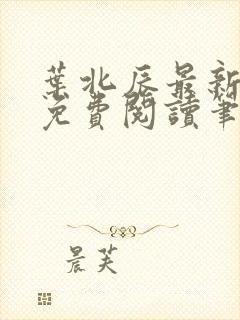 葉北辰最新
免費閱讀筆
晨芙